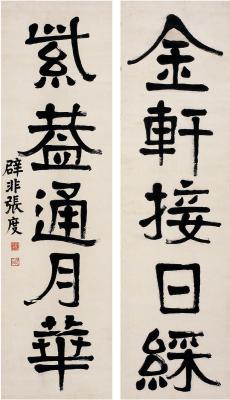 金軒接日綵
紫蓋通月華
辟非張度